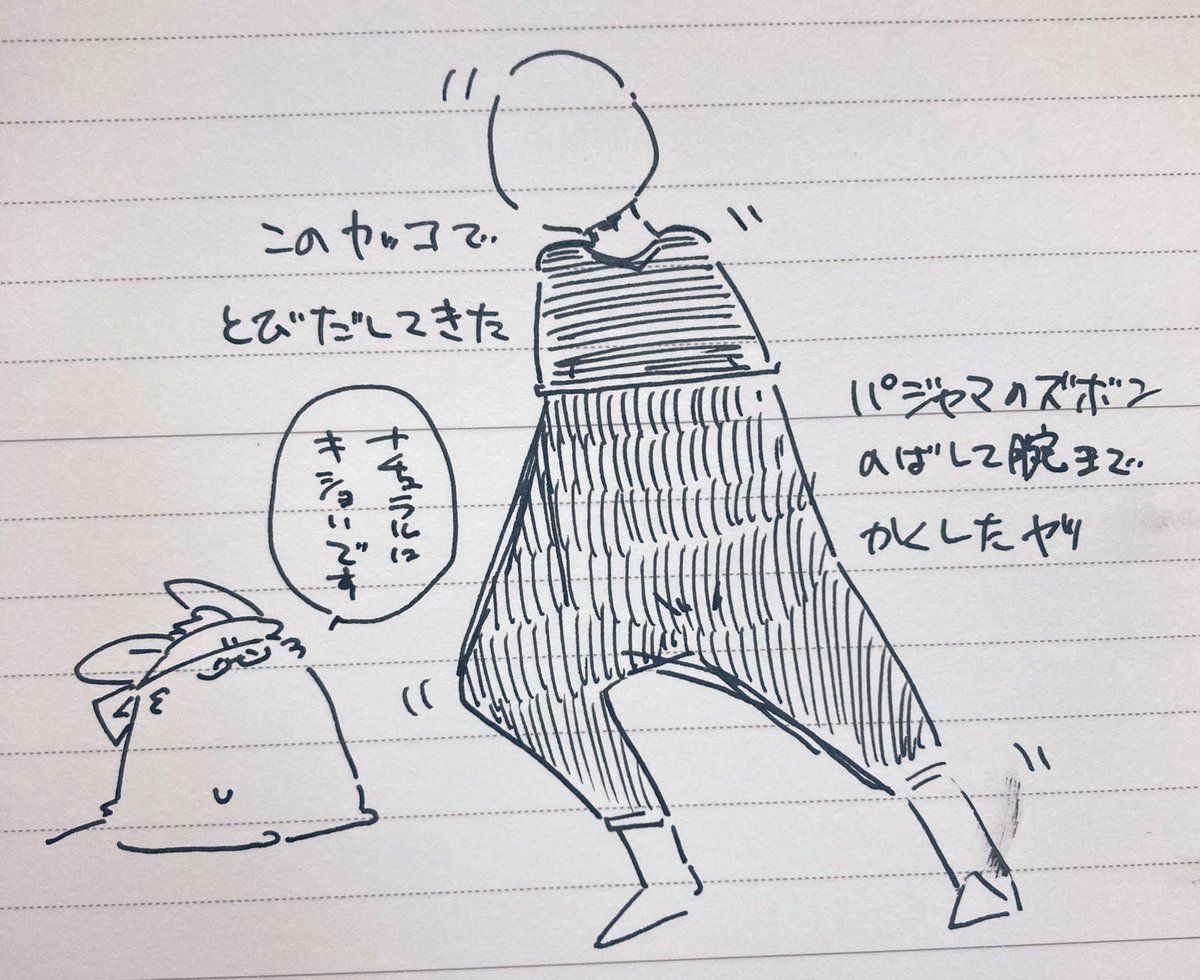 このカッコで
とびだしてきた
パジャマのズボン
のばして腕まで
かくしたヤツ
ナチュラルに
キショいです